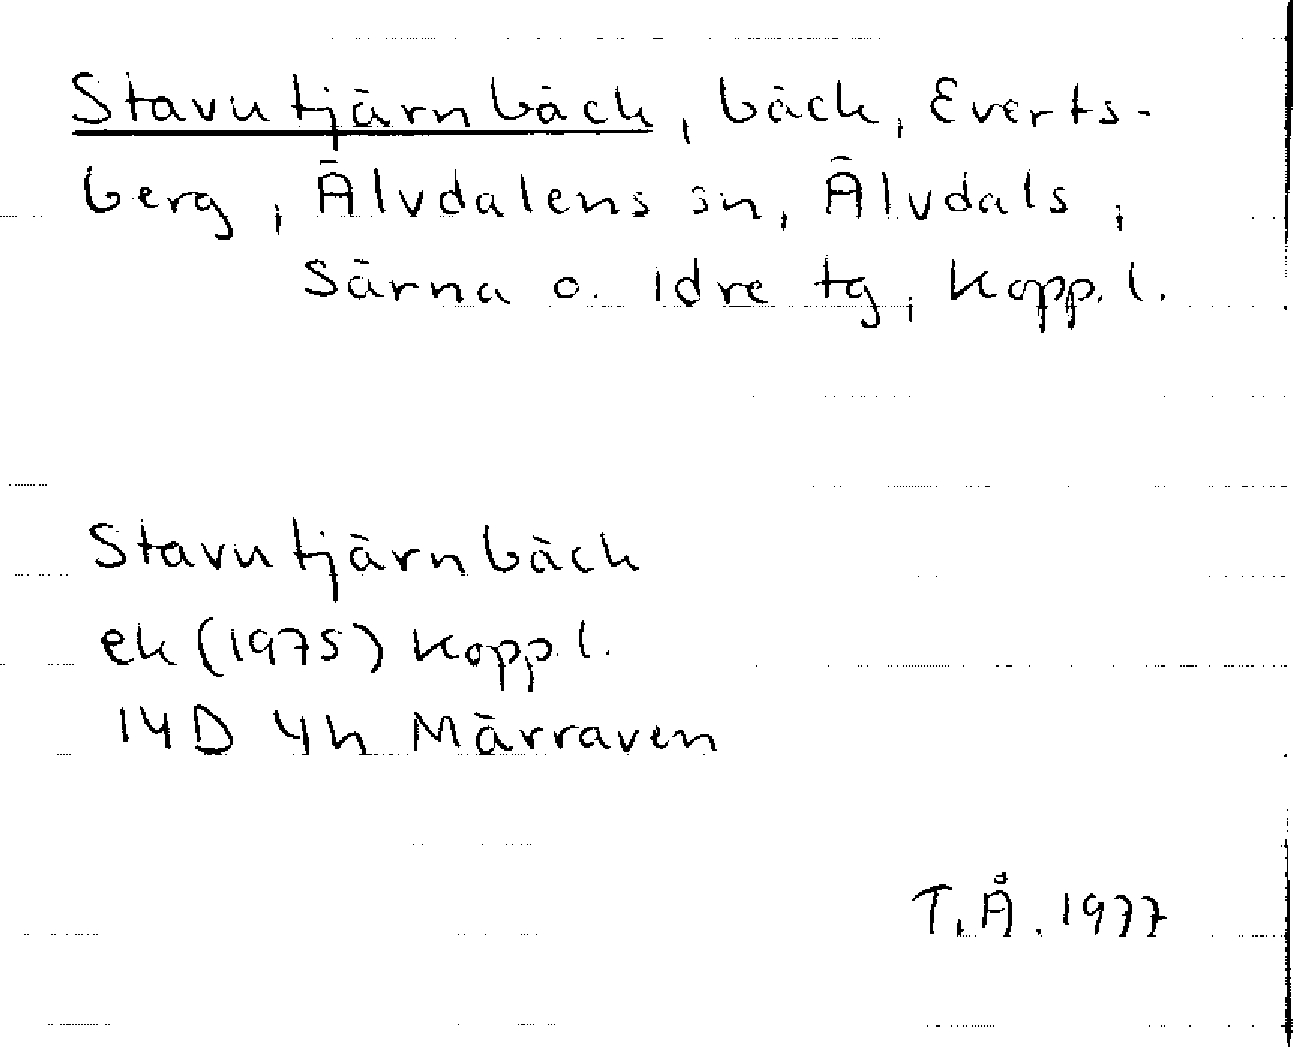 Stavutjärnbäck, bäck, Everts-
berg, Älvdalens sn, Älvdals,
Särna o. Idre tg, Kopp. l.
Stavutjärnbäck
ek (1975) Kopp. l.
14D 4h Märraven
T. Å. 1977